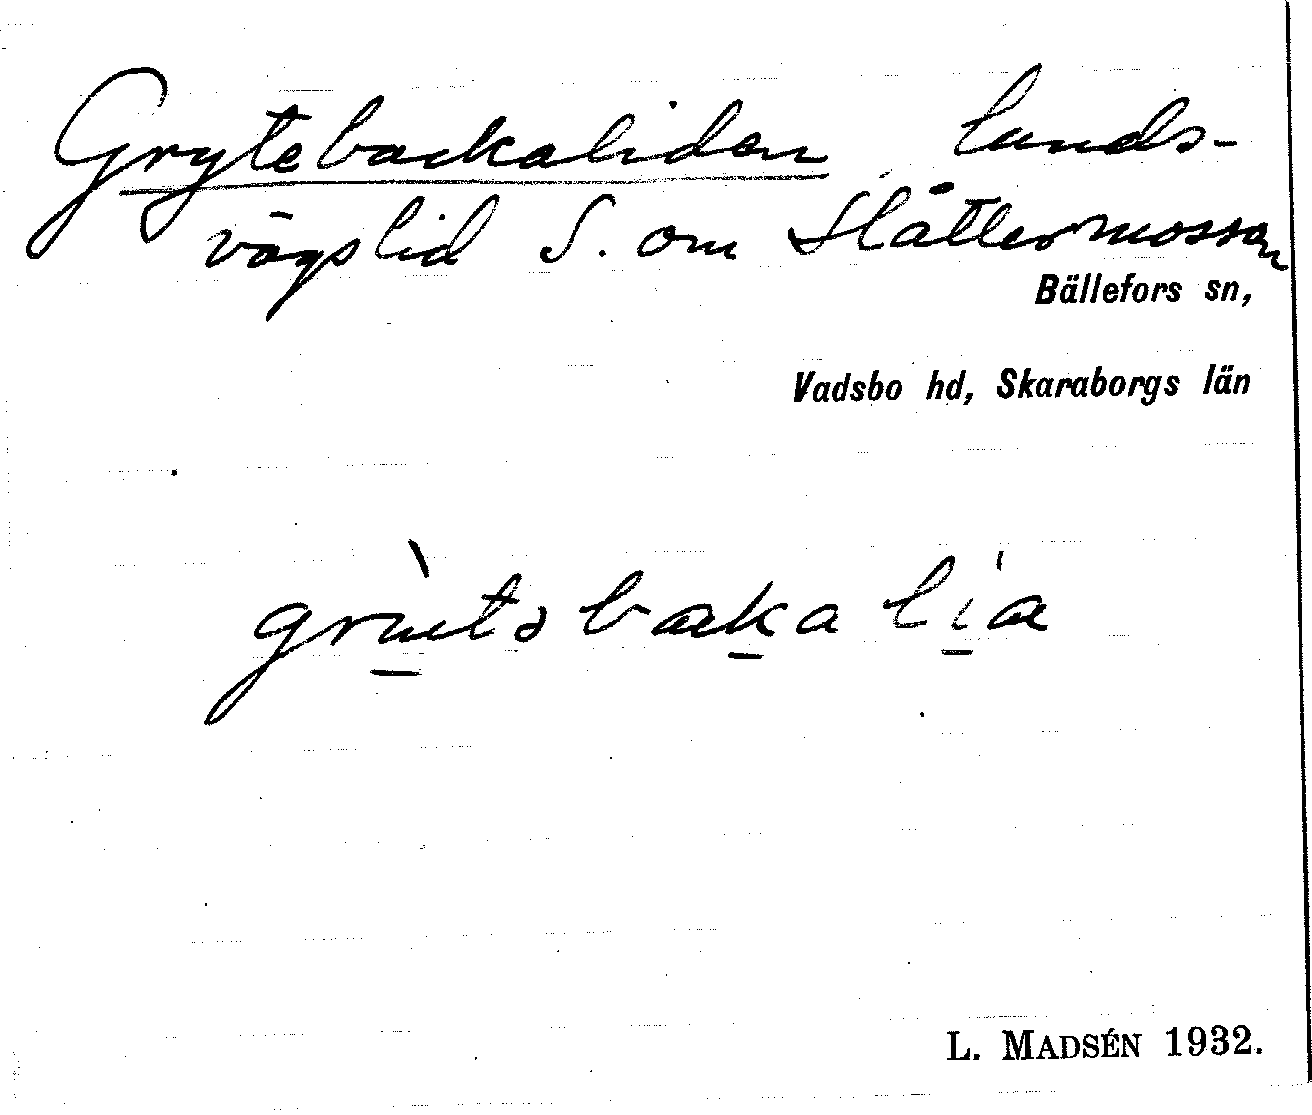 Grytebackaliden lands-
vägslid S. om Slåttermossen
Bällefors sn,
Vadsbo hd, Skaraborgs län
L. MADSÉN 1932.